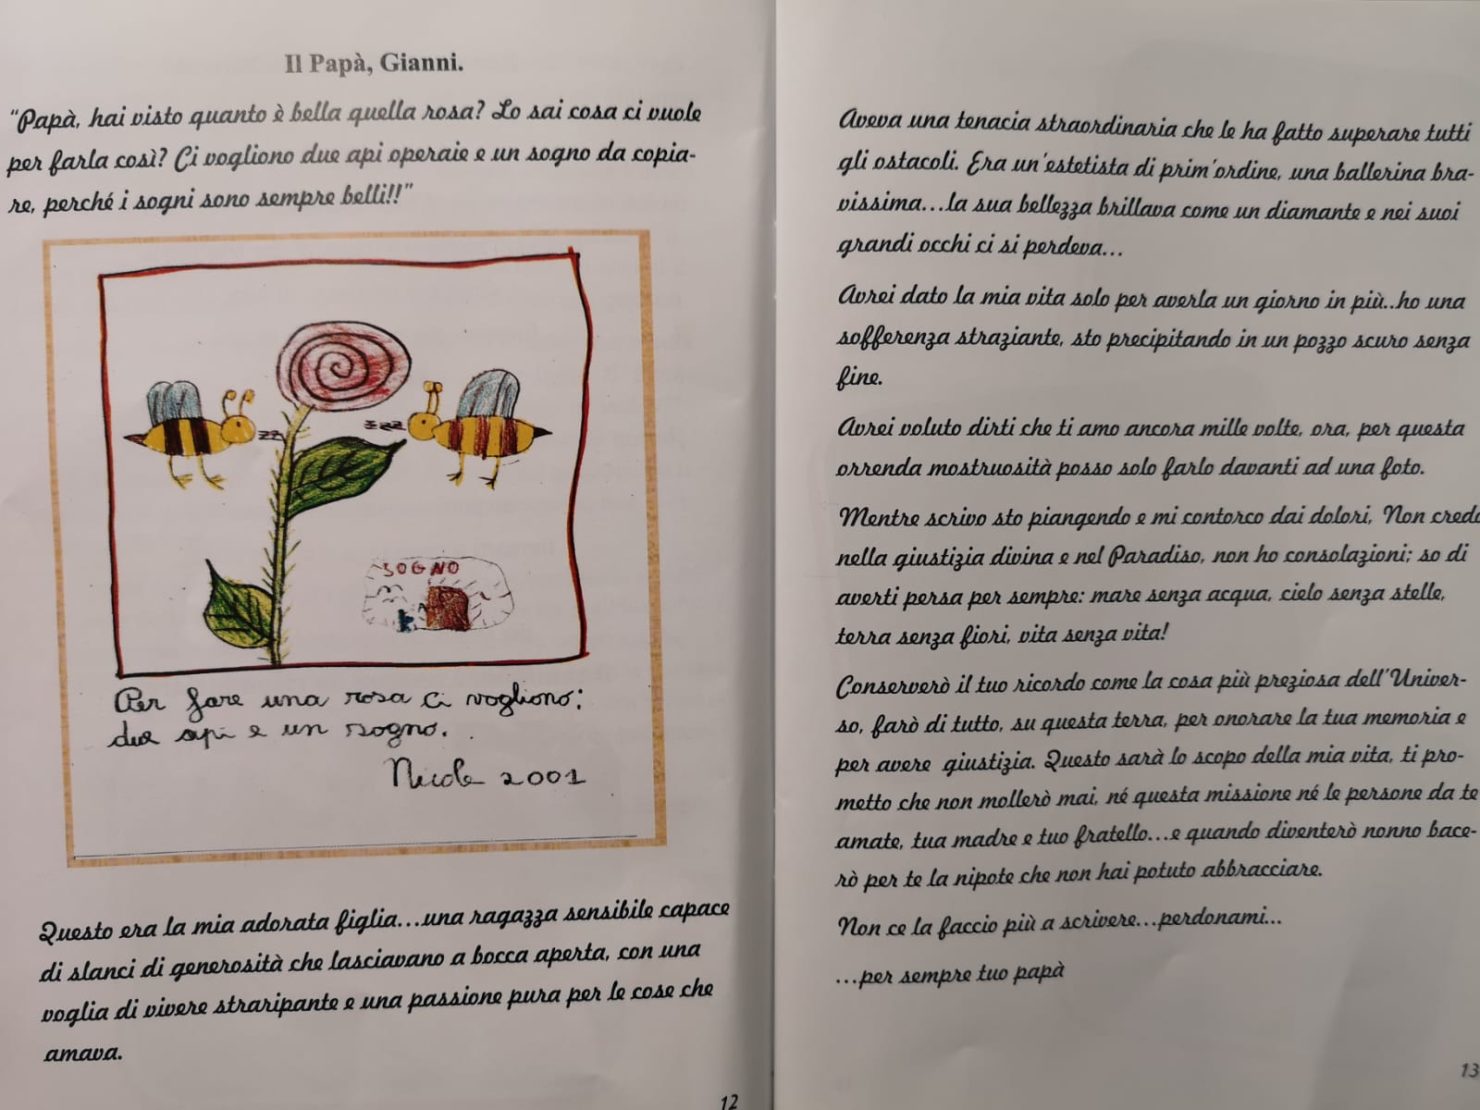 Il Papà, Gianni.
"Papà, hai visto quanto è bella quella rosa? Lo sai cosa ci vuole
per farla così? Ci vogliono due api operaie e un sogno da copia-
re, perché i sogni sono sempre belli!!"
zz
zzz
SOGNO
Per fare una rosa ci vogliono:
due api e un sogno.
Nicole 2001
Questo era la mia adorata figlia...una ragazza sensibile capace
di slanci di generosità che lasciavano a bocca aperta, con una
voglia di vivere straripante e una passione pura per le cose che
amava.
12
Aveva una tenacia straordinaria che le ha fatto superare tutti
gli ostacoli. Era un'estetista di prim'ordine, una ballerina bra-
vissima...la sua bellezza brillava come un diamante e nei suoi
grandi occhi ci si perdeva...
Avrei dato la mia vita solo per averla un giorno in più..ho una
sofferenza straziante, sto precipitando in un pozzo scuro senza
fine.
Avrei voluto dirti che ti amo ancora mille volte, ora, per questa
orrenda mostruosità posso solo farlo davanti ad una foto.
Mentre scrivo sto piangendo e mi contorco dai dolori, Non credo
nella giustizia divina e nel Paradiso, non ho consolazioni; so di
averti persa per sempre: mare senza acqua, cielo senza stelle,
terra senza fiori, vita senza vita!
Conserverò il tuo ricordo come la cosa più preziosa dell'Univer-
so, farò di tutto, su questa terra, per onorare la tua memoria e
per avere giustizia. Questo sarà lo scopo della mia vita, ti pro-
metto che non mollerò mai, né questa missione né le persone da te
amate, tua madre e tuo fratello...e quando diventerò nonno bace-
rò per te la nipote che non hai potuto abbracciare.
Non ce la faccio più a scrivere...perdonami...
...per sempre tuo papà
13